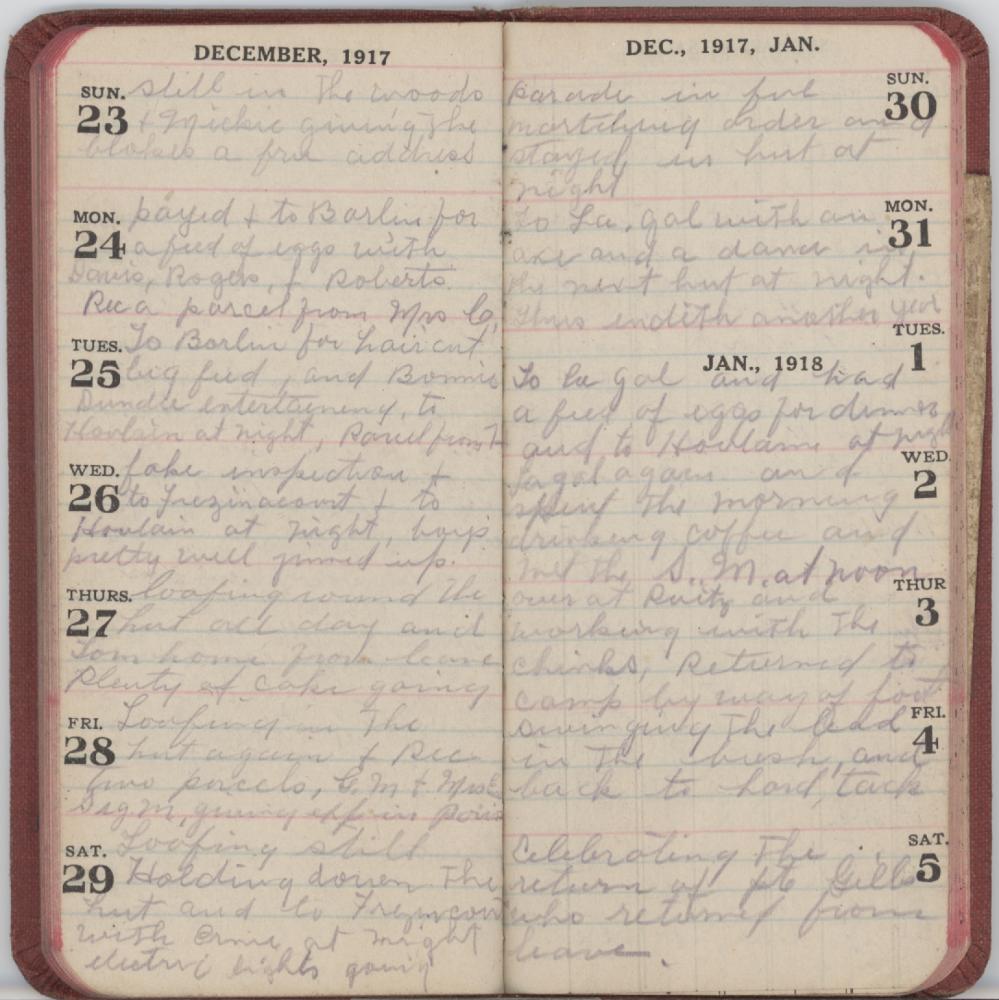 DECEMBER, 1917
SUN. 23
still in the woods
& Mickie giving the
blokes a free address
MON. 24
payed & to Barlin for
a feed of eggs with
Davis, Rogers, & Roberts.
Rec a parcel from Mrs C.
TUES. 25
To Barlin for hair cut
big feed, and Bonnie
Dundee entertayneng, to
Houlain at night, Parcel from
WED. 26
fake inspection &
to Frezinacourt & to
Houlain at night, boys
pretty well jinned up.
THURS. 27
loafing round the
hut all day and
Tom home from leave
Plenty of cake going
FRI. 28
Loafing in the
hut again & Rec
two parcels, G.M & Mrs
Sig M, going off in
SAT. 29
Loafing still
Holding down the
hut and to Frezincourt
with Ernie at night
electric lights going
DEC., 1917, JAN.
SUN. 30
Parade in full
martching order and
stayed in hut at
night
MON. 31
to La, gol with an
axe and a dance in
the next hut at night.
Thus endith another year
JAN., 1918
TUES. 1
To La gol and had
a feed of eggs for dinner
and to Houlaine at night
WED. 2
Lagol again and
spent the morning
drinking coffee and
met the S.. M. at noon
THUR 3
over at Ruitz and
working with the
chinks, Returned to
camp by way of foot
FRI. 4
swinging the lead
in the bush, and
back to hard, tack
SAT. 5
Celebrating the
return of pte Gills
who returned from
leave.